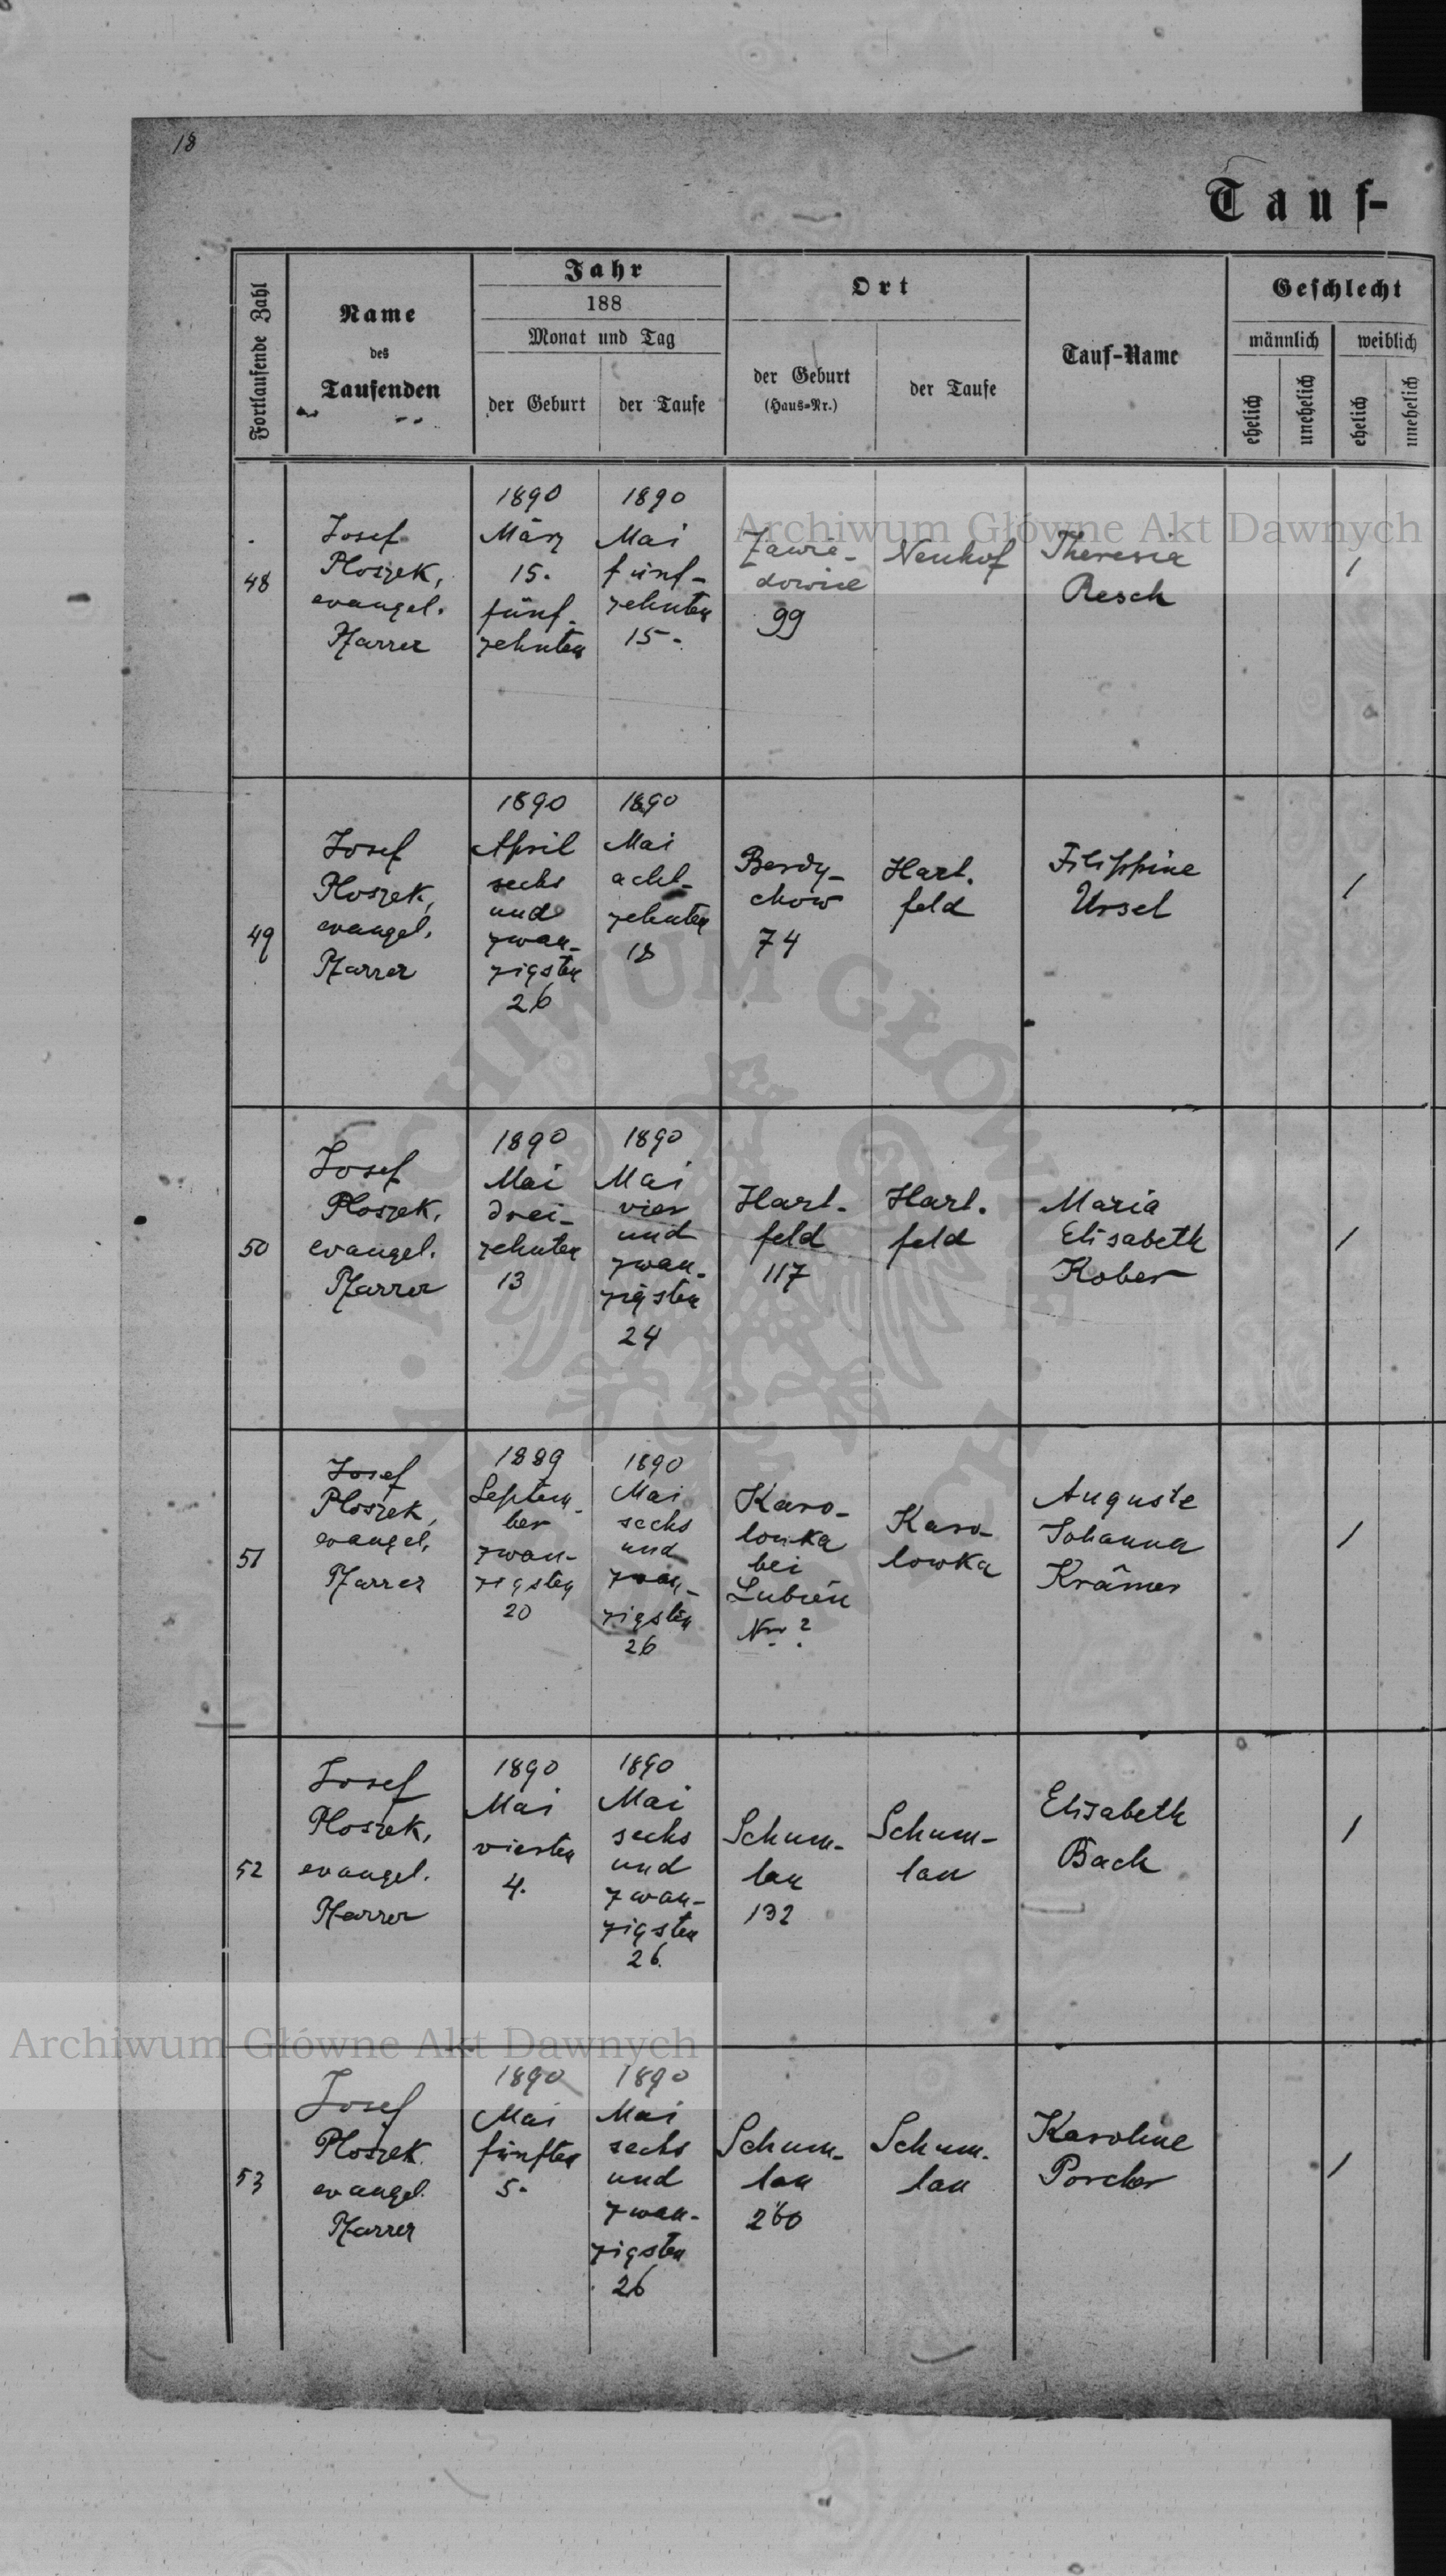 18
Tauf-
Fortlaufende Zahl
Name
des
Taufenden
Jahr
188
Monat und Tag
der Geburt
der Taufe
Ort
der Geburt
(Haus-Nr.)
der Taufe
Tauf-Name
Geschlecht
männlich
weiblich
ehelich
unehelich
ehelich
unehelich
48
Josef
Ploszek,
evangel.
Pfarrer
1890
März
15.
fünf-
zehnten
1890
Mai
fünf-
zehnten
15.
Zawie-
dowice
99
Neuhof
Theresia
Resch
/
49
Josef
Ploszek,
evangel.
Pfarrer
1890
April
sechs
und
zwan-
zigsten
26
1890
Mai
acht-
zehnten
18
Berdy-
chow
74
Hart-
feld
Filippine
Ursel
/
50
Josef
Ploszek,
evangel.
Pfarrer
1890
Mai
drei-
zehnten
13
1890
Mai
vier
und
zwan-
zigsten
24
Hart-
feld
117
Hart-
feld
Maria
Elisabeth
Kober
/
51
Josef
Ploszek,
evangel.
Pfarrer
1889
Septem-
ber
zwan-
zigsten
20
1890
Mai
sechs
und
zwan-
zigsten
26
Karo-
lowka
bei
Lubień
Nr ?
Karo-
lowka
Auguste
Johanna
Krämer
/
52
Josef
Ploszek,
evangel.
Pfarrer
1890
Mai
vierten
4.
1890
Mai
sechs
und
zwan-
zigsten
26.
Schum-
lau
132
Schum-
lau
Elisabeth
Bach
/
53
Josef
Ploszek
evangel.
Pfarrer
1890
Mai
fünften
5.
1890
Mai
sechs
und
zwan-
zigsten
26
Schum-
lau
260
Schum-
lau
Karoline
Porcher
/
Archiwum Główne Akt Dawnych
Archiwum Główne Akt Dawnych